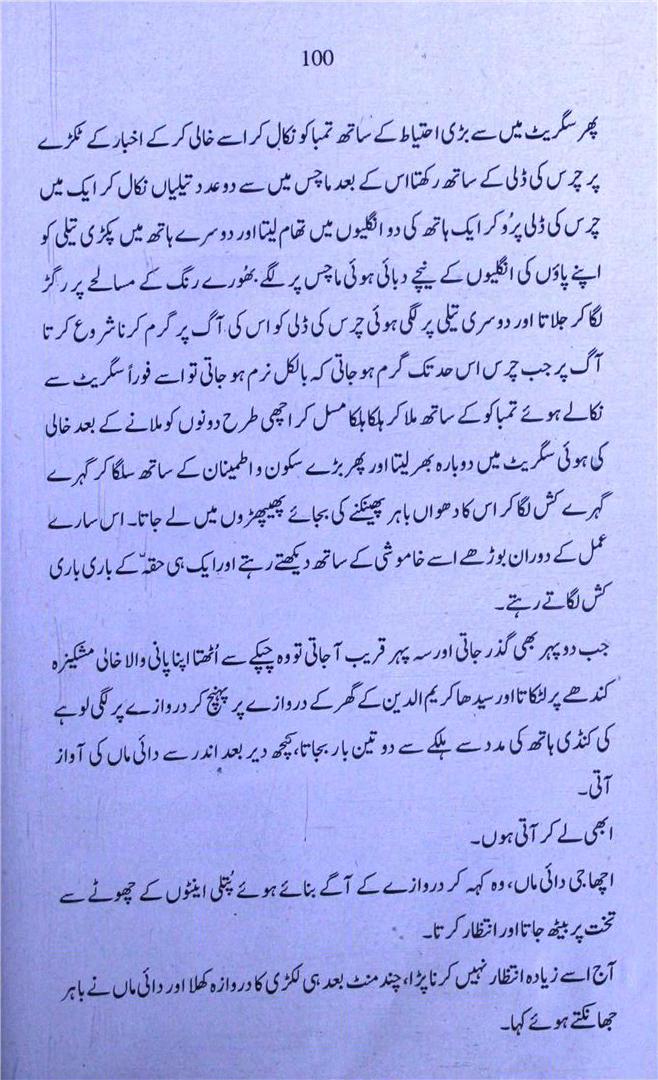 100
پھر سگریٹ میں سے بڑی احتیاط کے ساتھ تمباکو نکال کر اسے خالی کر کے اخبار کے ٹکڑے
پر چرس کی ڈلی کے ساتھ رکھتا اس کے بعد ماچس میں سے دو عدد تیلیاں نکال کر ایک میں
چرس کی ڈلی پرُو کر ایک ہاتھ کی دو انگلیوں میں تھام لیتا اور دوسرے ہاتھ میں پکڑی تیلی کو
اپنے پاؤں کی انگلیوں کے نیچے دبائی ہوئی ماچس پر لگے بھُورے رنگ کے مسالحے پر رگڑ
لگا کر جلاتا اور دوسری تیلی پر لگی ہوئی چرس کی ڈلی کو اس کی آگ پر گرم کرنا شروع کرتا
آگ پر جب چرس اس حد تک گرم ہو جاتی کہ بالکل نرم ہو جاتی تو اسے فوراً سگریٹ سے
نکالے ہوئے تمباکو کے ساتھ ملا کر ہلکا ہلکا مسل کر اچھی طرح دونوں کو ملانے کے بعد خالی
کی ہوئی سگریٹ میں دوبارہ بھر لیتا اور پھر بڑے سکون و اطمینان کے ساتھ سلگا کر گہرے
گہرے کش لگا کر اس کا دھواں باہر پھینکنے کی بجائے پھیپھڑوں میں لے جاتا۔ اس سارے
عمل کے دوران بوڑھے اسے خاموشی کے ساتھ دیکھتے رہتے اور ایک ہی حقہّ کے باری باری
کش لگاتے رہتے۔
جب دوپہر بھی گذر جاتی اور سہ پہر قریب آ جاتی تو وہ چپکے سے اُٹھتا اپنا پانی والا خالی مشکیزہ
کندھے پر لٹکاتا اور سیدھا کریم الدین کے گھر کے دروازے پر پہنچ کر دروازے پر لگی لوہے
کی کنڈی ہاتھ کی مدد سے ہلکے سے دو تین بار بجاتا، کچھ دیر بعد اندر سے دائی ماں کی آواز
آتی۔
ابھی لے کر آتی ہوں۔
اچھا جی دائی ماں، وہ کہہ کر دروازے کے آگے بنائے ہوئے پُتلی اینٹوں کے چھوٹے سے
تخت پر بیٹھ جاتا اور انتظار کرتا۔
آج اسے زیادہ انتظار نہیں کرنا پڑا، چند منٹ بعد ہی لکڑی کا دروازہ کھلا اور دائی ماں نے باہر
جھانکتے ہوئے کہا۔